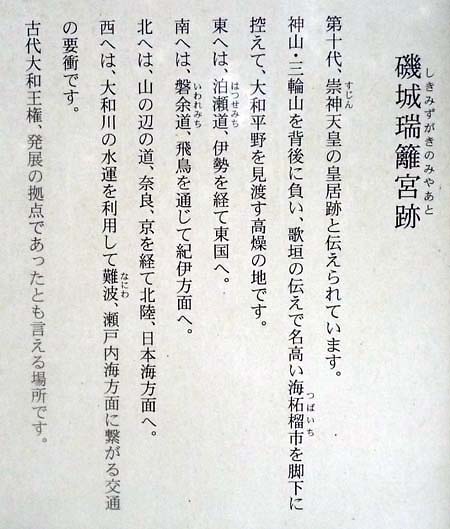 磯城瑞籬宮跡
しきみずがきのみやあと
第十代、崇神天皇の皇居跡と伝えられています。
すじん
神山・三輪山を背後に負い、歌垣の伝えで名高い海柘榴市を脚下に
つばいち
控えて、大和平野を見渡す高燥の地です。
東へは、泊瀬道、伊勢を経て東国へ。
はつせみち
南へは、磐余道、飛鳥を通じて紀伊方面へ。
いわれみち
北へは、山の辺の道、奈良、京を経て北陸、日本海方面へ。
西へは、大和川の水運を利用して難波、瀬戸内海方面に繋がる交通
なにわ
の要衝です。
古代大和王権、発展の拠点であったとも言える場所です。